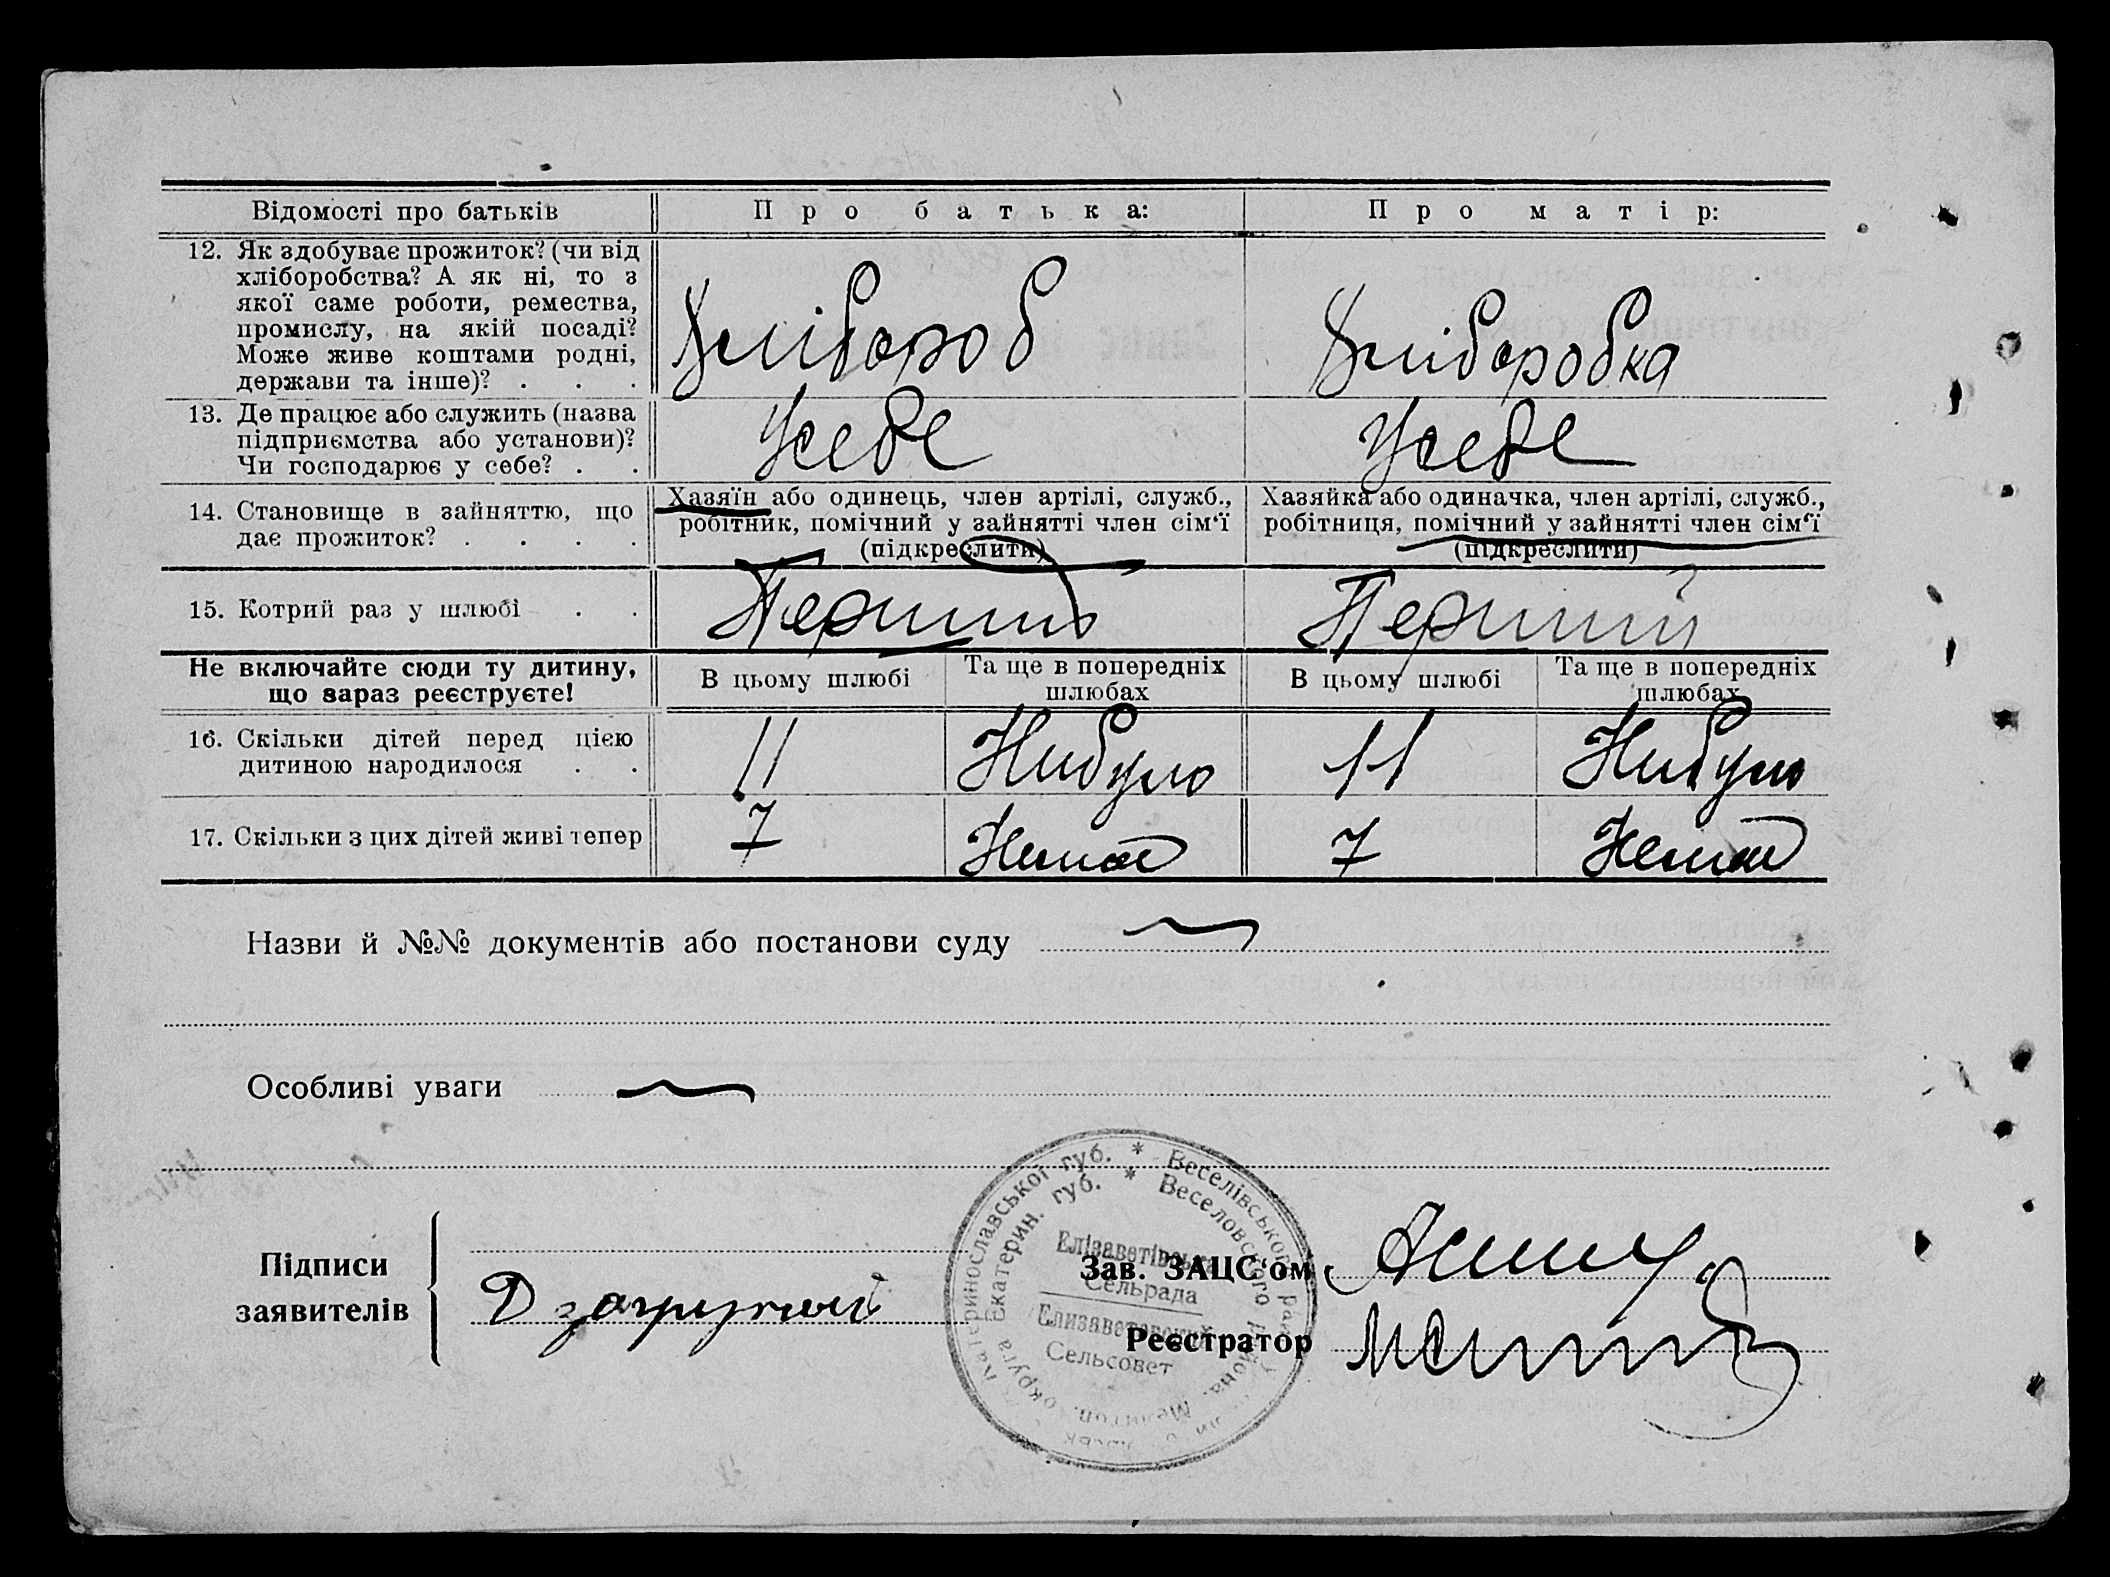 Відомості про батьків
Про батька:
Про матір:
12. Як здобуває прожиток? (чи від
хліборобства? А як ні, то з
якої саме роботи, ремества,
промислу, на якій посаді?
Може живе коштами родні,
держави та інше)? . . .
Хлібороб
Хліборобка
13. Де працює або служить (назва
підприємства або установи)?
Чи господарює у себе? . .
Усебе
Усебе
14. Становище в зайняттю, що
дає прожиток? . . . .
Хазяїн або одинець, член артілі, служб.,
робітник, помічний у зайнятті член сім‘ї
(підкреслити)
Хазяйка або одиначка, член артілі, служб.,
робітниця, помічний у зайнятті член сім‘ї
(підкреслити)
15. Котрий раз у шлюбі . .
Перший
Перший
Не включайте сюди ту дитину,
що зараз реєструєте!
В цьому шлюбі
Та ще в попередніх
шлюбах
В цьому шлюбі
Та ще в попередніх
шлюбах
16. Скільки дітей перед цією
дитиною народилося . .
11
Нибуло
11
Нибуло
17. Скільки з цих дітей живі тепер
7
Немає
7
Немає
Назви й №№ документів або постанови суду
Особливі уваги
Підписи
заявителів
Зав. ЗАЦС‘ом
Реєстратор
Катеринославської губ. * Веселівського
Екатерин. губ. * Веселовского района. Мелитоп. округа
Елізаветівська
Сельрада
Елизаветовский
Сельсовет